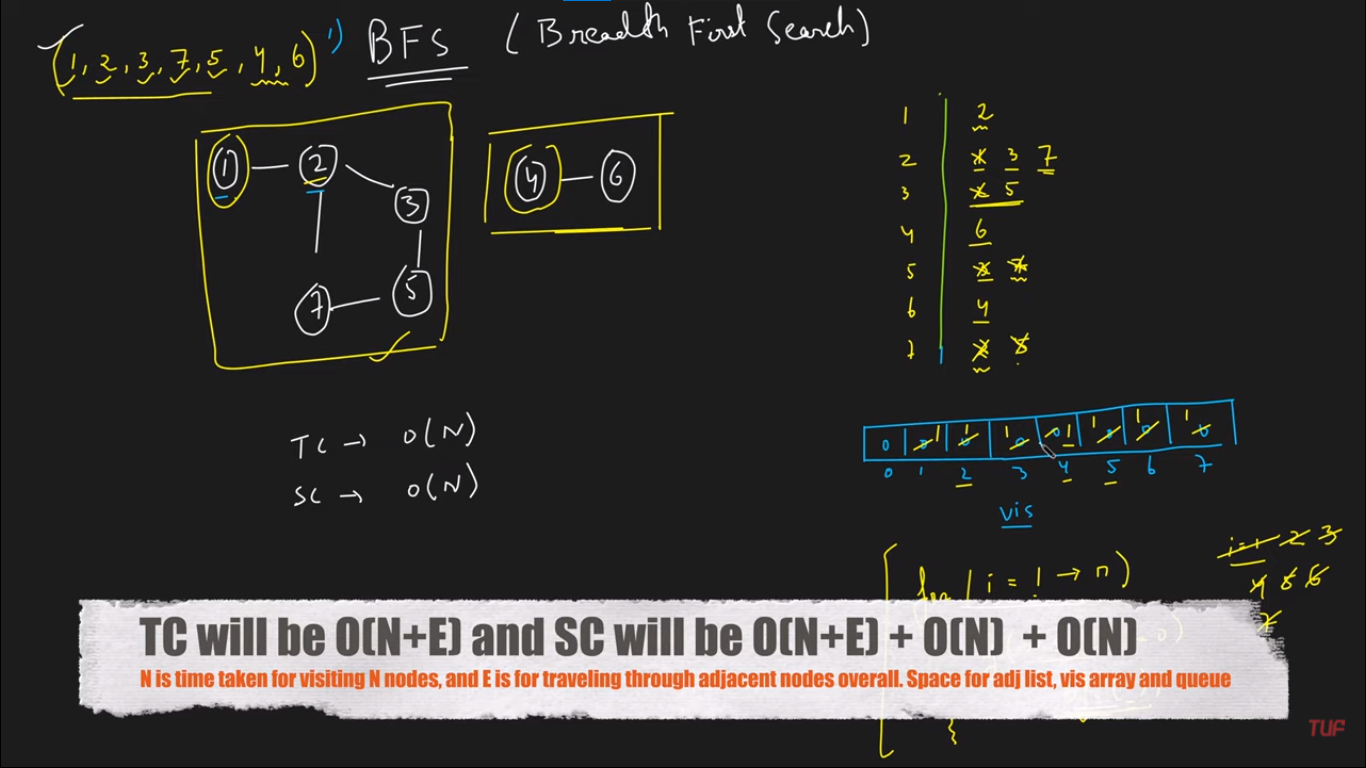 (1, 2, 3, 7, 5, 4, 6)
1) BFS (Breadth First Search)
1 2 3 5 7
4 6
1 2
2 1 3 7
3 2 5
4 6
5 3 7
6 4
7 2 5
TC → O(N)
SC → O(N)
0 0 1 0 1 0 1 0 1 0 1 0 1 0 1
0 1 2 3 4 5 6 7
vis
i=1 2 3
4 5 6
7
for (i = 1 → n)
TC will be O(N+E) and SC will be O(N+E) + O(N) + O(N)
N is time taken for visiting N nodes, and E is for traveling through adjacent nodes overall. Space for adj list, vis array and queue
}
TUF